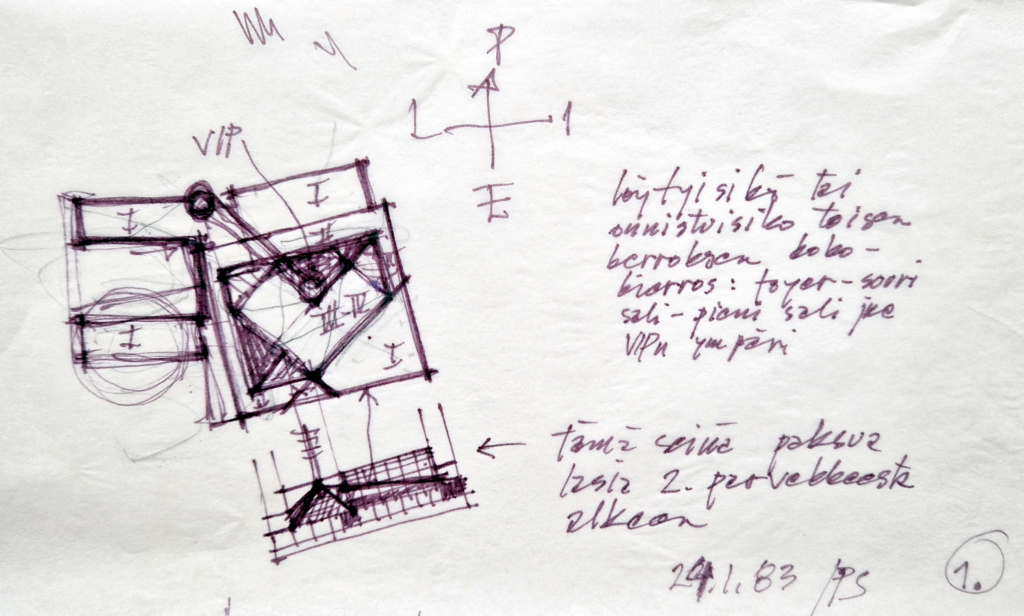 P
L I
E
VIP
I
I
II
III-IV
I
I
II
III
löytyisikö tai
onnistuisiko toisen
kerroksen koko-
kierros: foyer-suuri
sali-pieni sali jne
VIPn ympäri
tämä seinä paksua
lasia 2. parvekkeesta
alkaen
29.1.83 /PS
1.